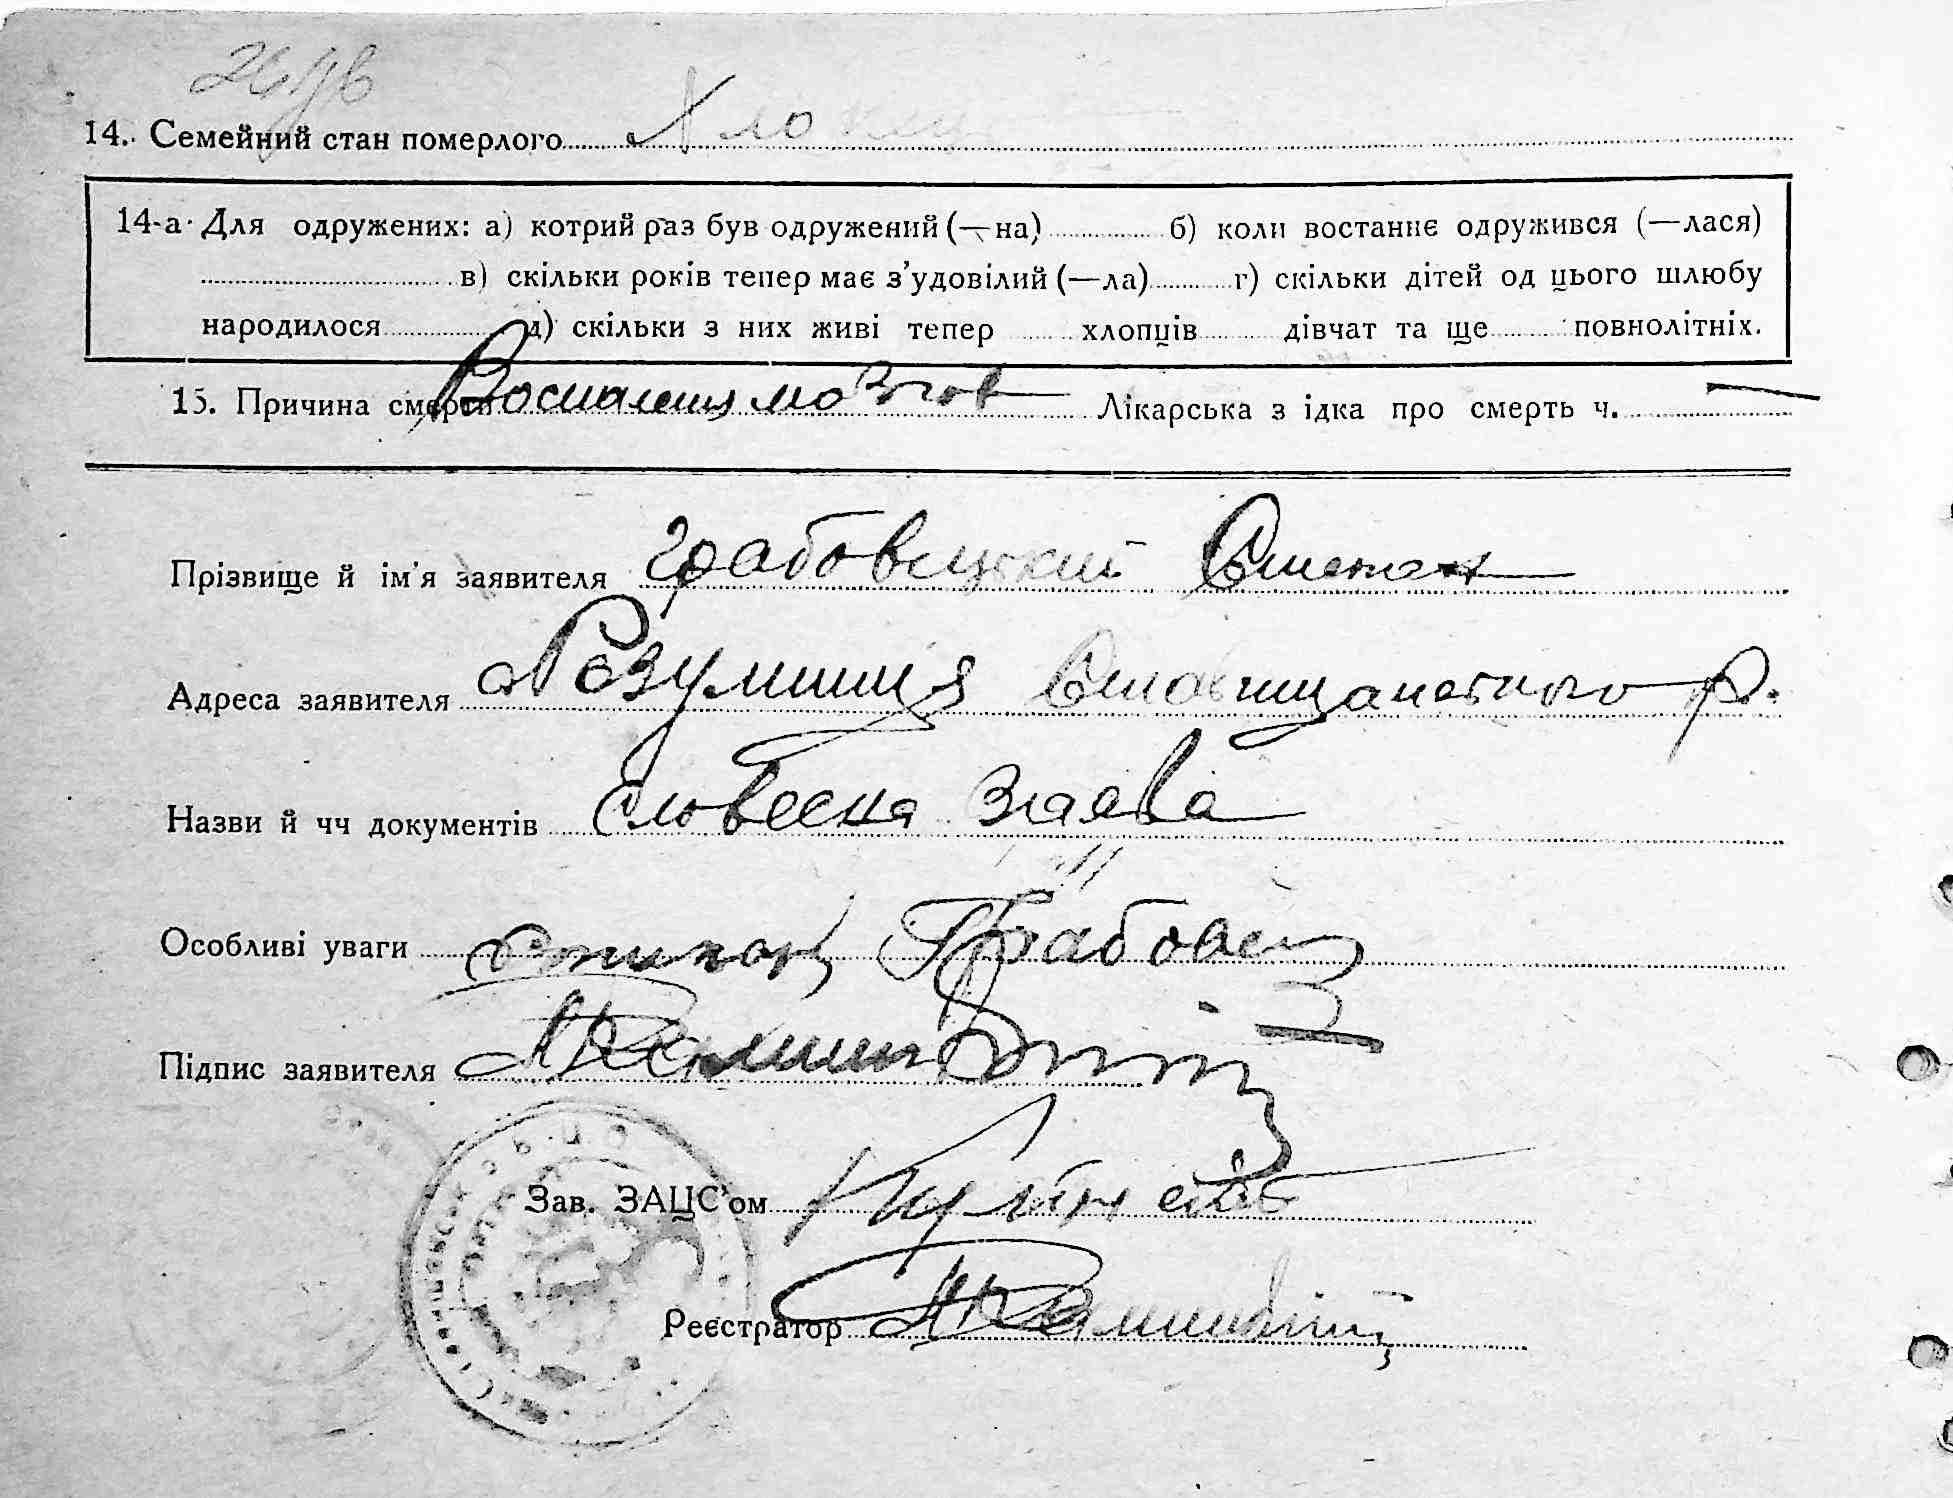 14. Семейний стан померлого Хлопец
14-а. Для одружених: а) котрий раз був одружений (—на) б) коли востаннє одружився (—лася)
в) скільки років тепер має з'удовілий (—ла) г) скільки дітей од цього шлюбу
народилося д) скільки з них живі тепер хлопців дівчат та ще повнолітніх.
15. Причина смерти Воспаления мозгов — Лікарська з ідка про смерть ч. —
Прізвище й ім'я заявителя Грабовецький Степан
Адреса заявителя Розумниця Ставищанського р.
Назви й чч документів Словесна заява
Особливі уваги Грабовец
Підпис заявителя
Зав. ЗАЦС'ом
Реєстратор